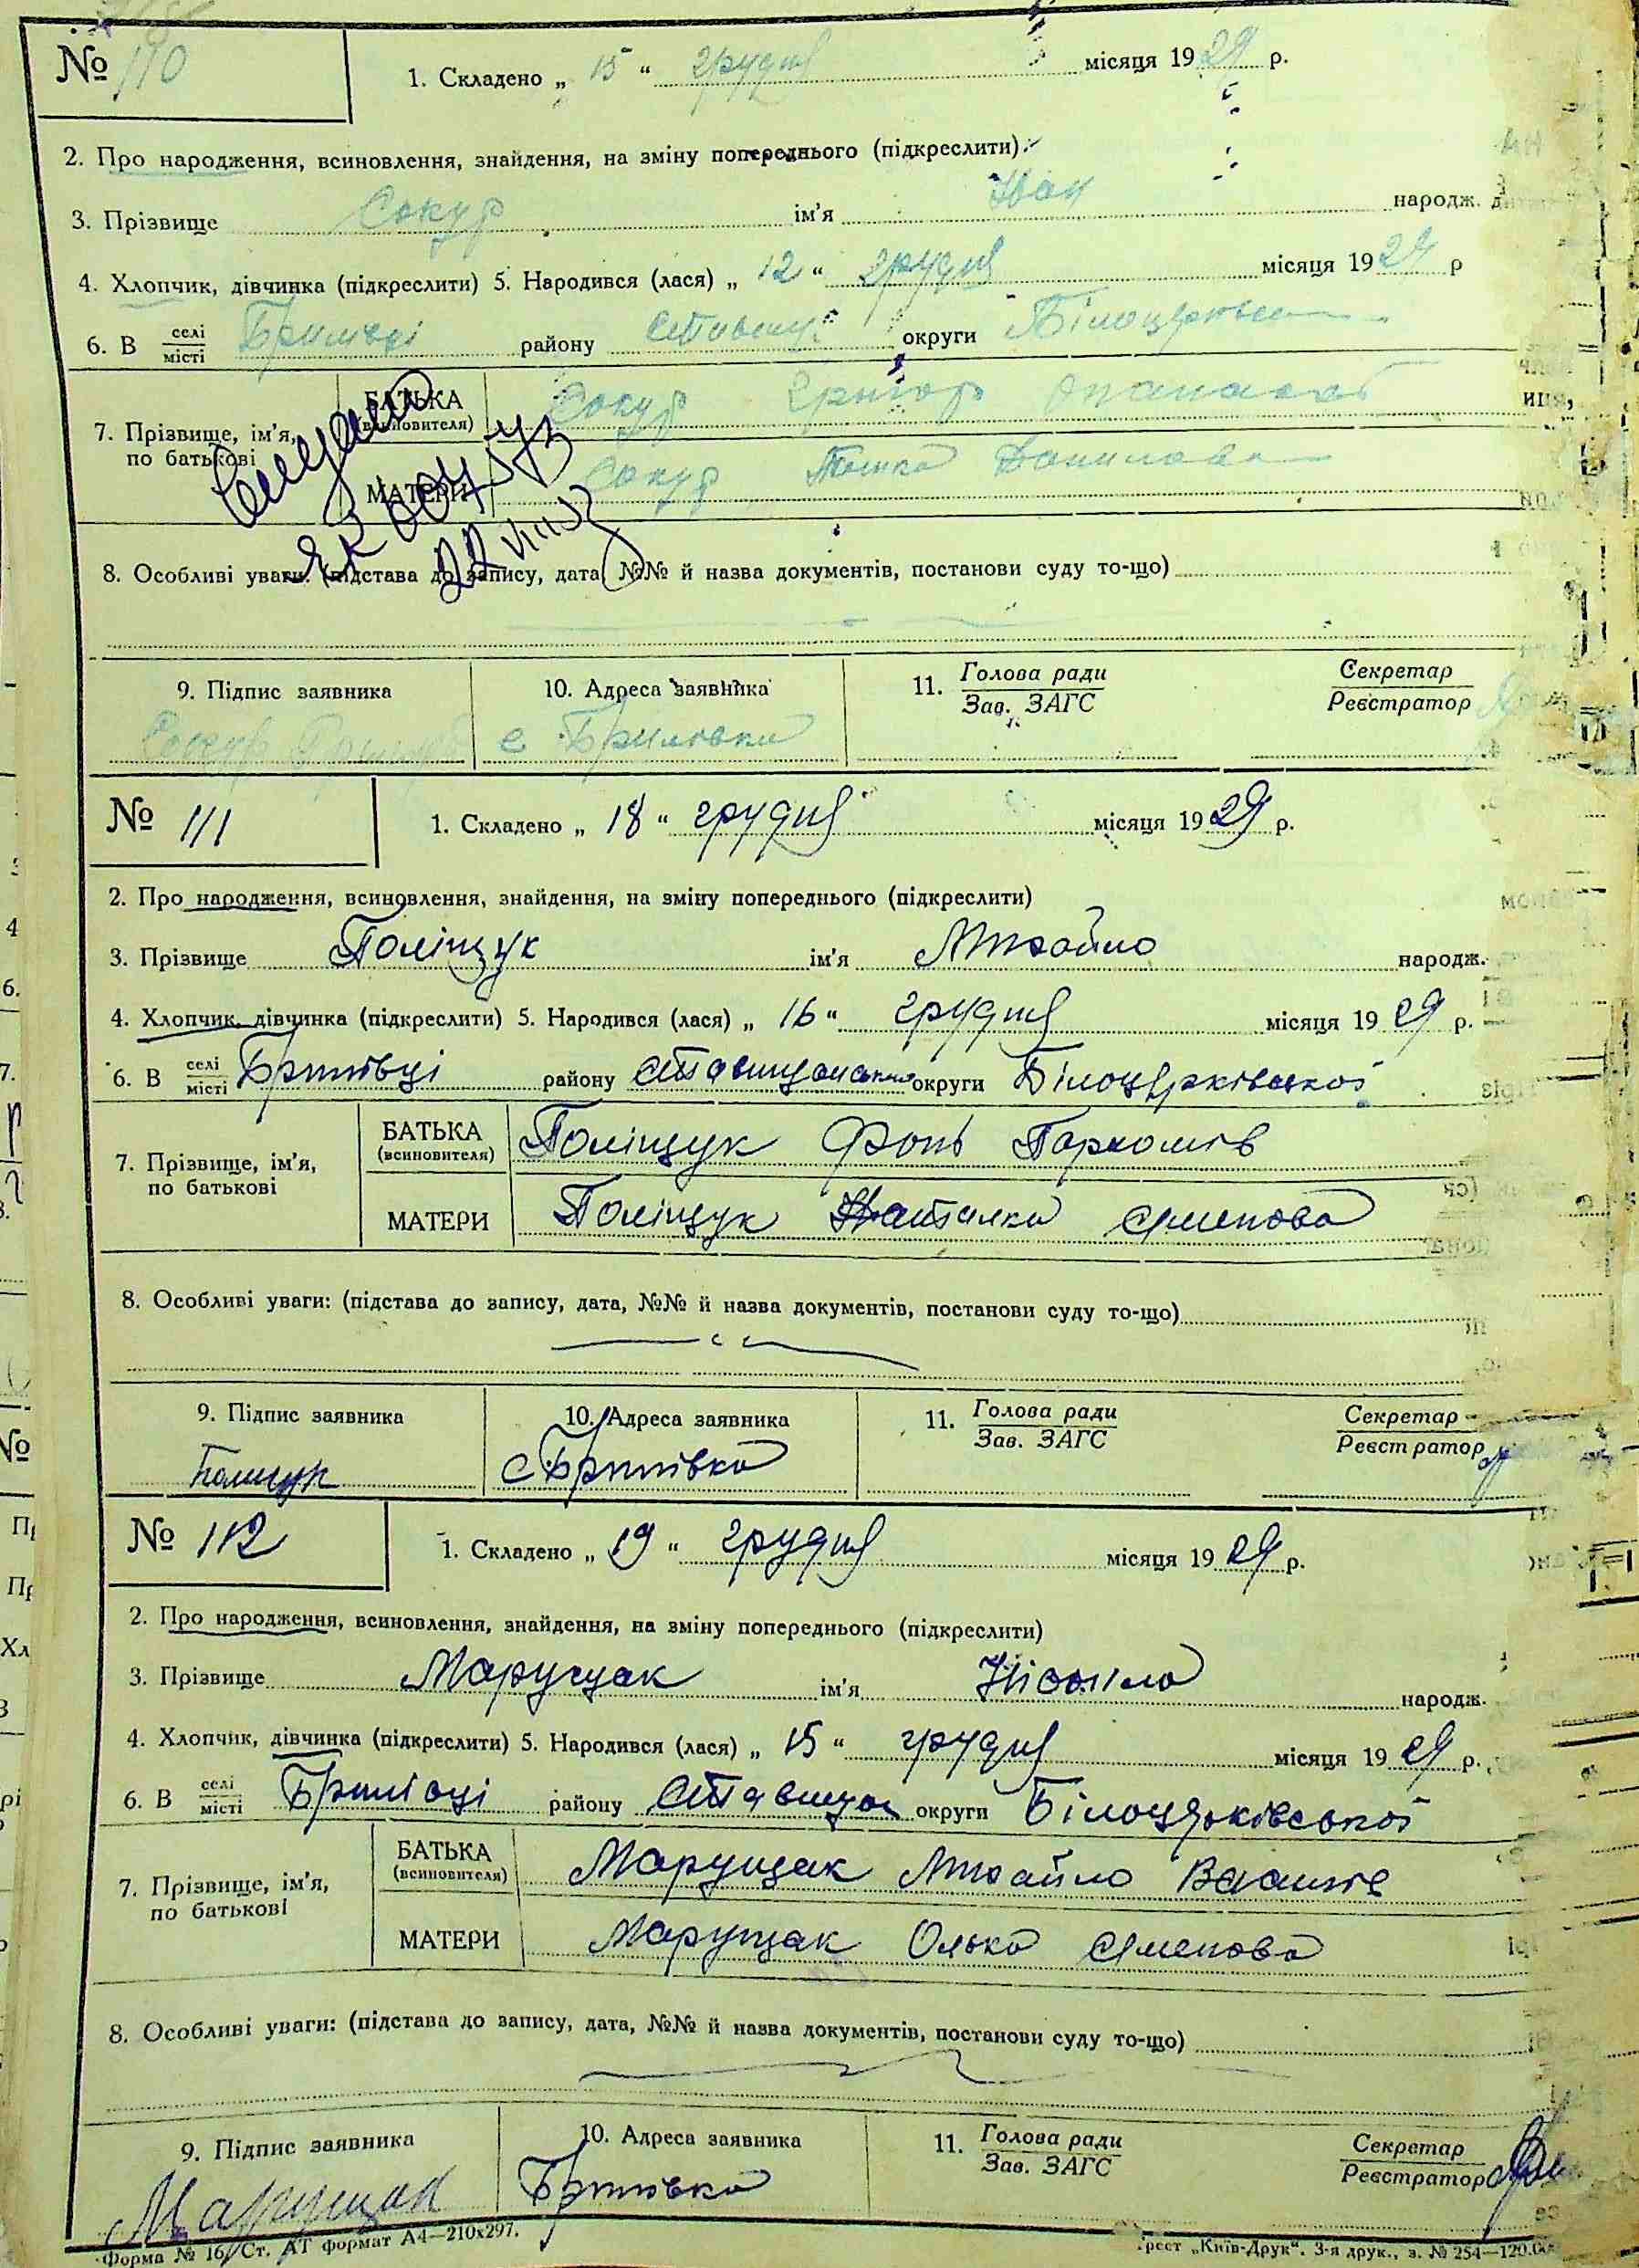 № 110
1. Складено „ 15 “ грудня місяця 1929 р.
2. Про народження, всиновлення, знайдення, на зміну попереднього (підкреслити)
3. Прізвище Сокур ім'я Іван народж.
4. Хлопчик, дівчинка (підкреслити) 5. Народився (лася) „ 12 “ грудня місяця 1929 р
6. В селі/місті Брилівці району Ставищ округи Білоцерківськ
7. Прізвище, ім'я, по батькові
БАТЬКА (всиновителя) Сокур Григор
МАТЕРИ Сокур Данилова
8. Особливі уваги: (підстава до запису, дата, №№ й назва документів, постанови суду то-що)
9. Підпис заявника 10. Адреса заявника 11. Голова ради/Зав. ЗАГС Секретар/Реєстратор
Сокур с. Брилівка
№ 111
1. Складено „ 18 “ грудня місяця 1929 р.
2. Про народження, всиновлення, знайдення, на зміну попереднього (підкреслити)
3. Прізвище Поліщук ім'я Михайло народж.
4. Хлопчик, дівчинка (підкреслити) 5. Народився (лася) „ 16 “ грудня місяця 1929 р.
6. В селі/місті Брилівці району Ставищанськ округи Білоцерківської
7. Прізвище, ім'я, по батькові
БАТЬКА (всиновителя) Поліщук Фонь Пархомів
МАТЕРИ Поліщук Наталка Яменова
8. Особливі уваги: (підстава до запису, дата, №№ й назва документів, постанови суду то-що)
9. Підпис заявника 10. Адреса заявника 11. Голова ради/Зав. ЗАГС Секретар/Реєстратор
Полищук с Брилівка
№ 112
1. Складено „ 19 “ грудня місяця 1929 р.
2. Про народження, всиновлення, знайдення, на зміну попереднього (підкреслити)
3. Прізвище Марущак ім'я народж.
4. Хлопчик, дівчинка (підкреслити) 5. Народився (лася) „ 15 “ грудня місяця 1929 р.
6. В селі/місті Брилівці району Ставищан округи Білоцерківської
7. Прізвище, ім'я, по батькові
БАТЬКА (всиновителя) Марущак Михайло Василів
МАТЕРИ Марущак Олька Яменова
8. Особливі уваги: (підстава до запису, дата, №№ й назва документів, постанови суду то-що)
9. Підпис заявника 10. Адреса заявника 11. Голова ради/Зав. ЗАГС Секретар/Реєстратор
Марущак Брилівка
Форма № 16. Ст. АТ формат А4—210х297.
Трест „Київ-Друк“. 3-я друк., з. № 254—120.0